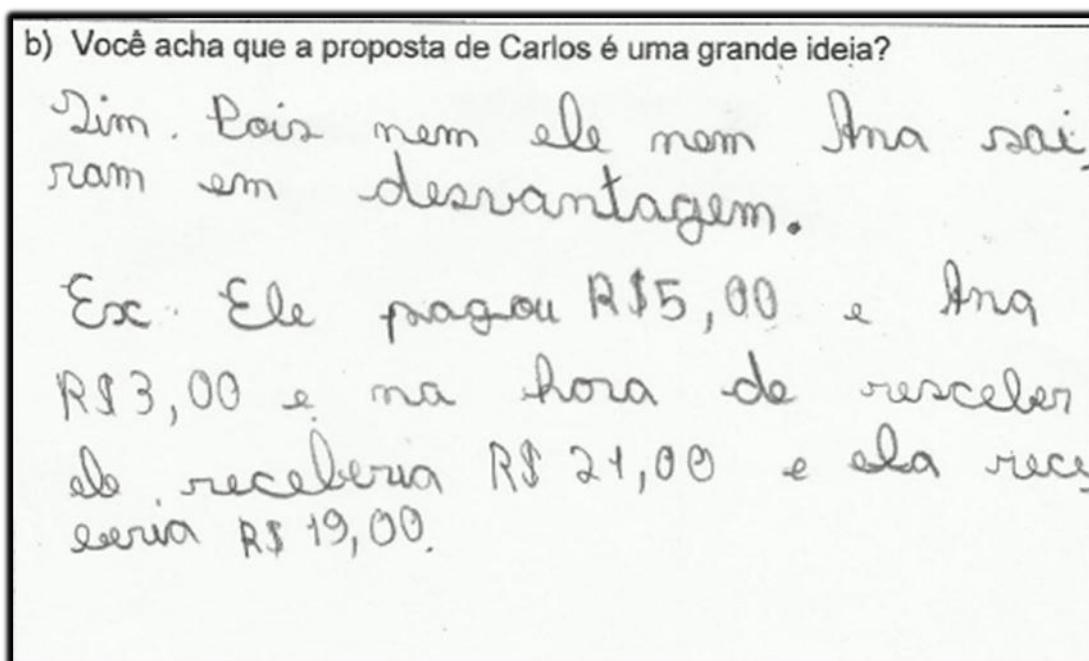 b) Você acha que a proposta de Carlos é uma grande ideia?
Sim. Pois nem ele nem Ana sai
ram em desvantagem.
Ex. Ele pagou R$5,00 e Ana
R$3,00 e na hora de resceber
ele receberia R$ 21,00 e ela rece
beria R$ 19,00.